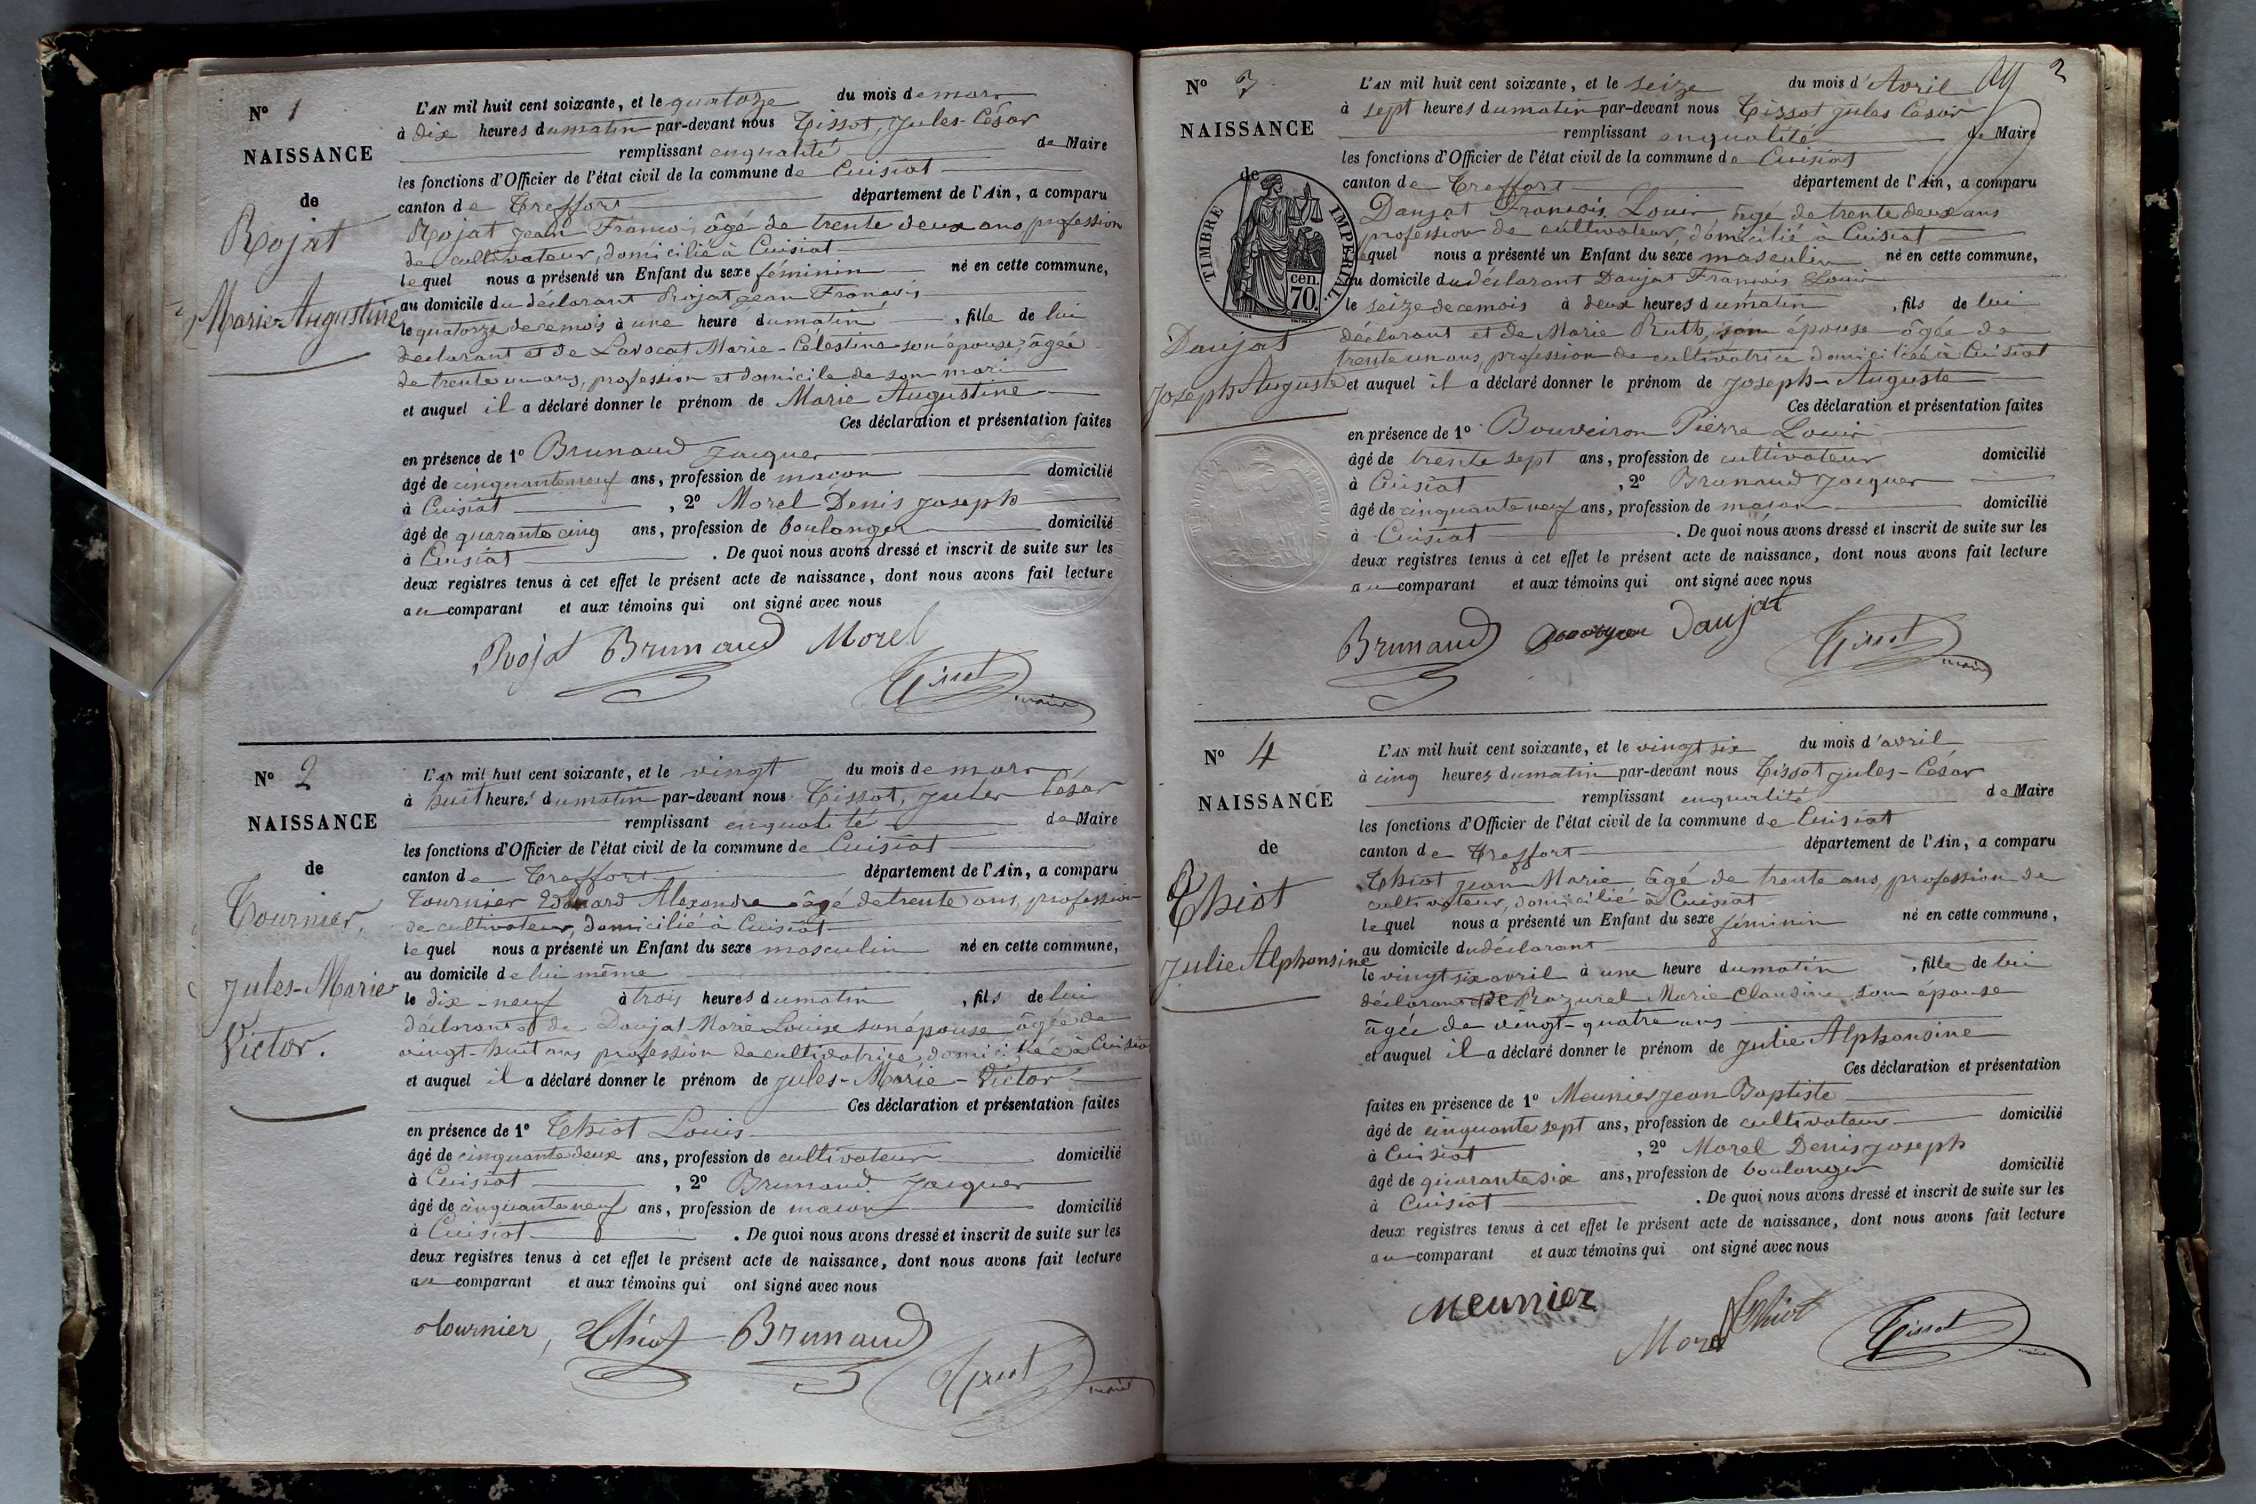 N° 1
NAISSANCE
de
Rojat
Marie-Augustine
L'AN mil huit cent soixante, et le quatorze du mois de mars
à dix heures du matin par-devant nous Tissot, Jules-César
remplissant en qualité de Maire
les fonctions d'Officier de l'état civil de la commune de Cuisiat
canton de Treffort département de l'Ain, a comparu
Rojat Jean François âgé de trente deux ans profession
de cultivateur, domicilié à Cuisiat
lequel nous a présenté un Enfant du sexe féminin né en cette commune,
au domicile du déclarant Rojat Jean François
le quatorze de ce mois à une heure du matin, fille de lui
déclarant et de Lavocat Marie-Célestine son épouse, âgée
de trente un ans, profession et domicile de son mari
et auquel il a déclaré donner le prénom de Marie Augustine
Ces déclaration et présentation faites
en présence de 1° Brunaud Jacques
âgé de cinquante neuf ans, profession de maçon domicilié
à Cuisiat, 2° Morel Denis Joseph
âgé de quarante cinq ans, profession de boulanger domicilié
à Cuisiat. De quoi nous avons dressé et inscrit de suite sur les
deux registres tenus à cet effet le présent acte de naissance, dont nous avons fait lecture
au comparant et aux témoins qui ont signé avec nous
Rojat Brunaud Morel
Tissot
maire
N° 2
NAISSANCE
de
Tournier,
Jules-Marie
Victor.
L'AN mil huit cent soixante, et le vingt du mois de mars
à huit heures du matin par-devant nous Tissot, Jules César
remplissant en qualité de Maire
les fonctions d'Officier de l'état civil de la commune de Cuisiat
canton de Treffort département de l'Ain, a comparu
Tournier Edouard Alexandre âgé de trente ans, profession
de cultivateur, domicilié à Cuisiat
lequel nous a présenté un Enfant du sexe masculin né en cette commune,
au domicile de lui même
le dix-neuf à trois heures du matin, fils de lui
déclarant et de Daujat Marie Louise son épouse âgée de
vingt-huit ans profession de cultivatrice domiciliée à Cuisiat
et auquel il a déclaré donner le prénom de Jules-Marie-Victor
Ces déclaration et présentation faites
en présence de 1° Thiot Louis
âgé de cinquante deux ans, profession de cultivateur domicilié
à Cuisiat, 2° Brunaud Jacques
âgé de cinquante neuf ans, profession de maçon domicilié
à Cuisiat. De quoi nous avons dressé et inscrit de suite sur les
deux registres tenus à cet effet le présent acte de naissance, dont nous avons fait lecture
au comparant et aux témoins qui ont signé avec nous
Tournier, Thiot Brunaud
Tissot
maire
2
N° 3
NAISSANCE
de
TIMBRE IMPERIAL.
70 cen.
Daujat
Joseph Auguste
L'AN mil huit cent soixante, et le seize du mois d'Avril
à sept heures du matin par-devant nous Tissot Jules César
remplissant en qualité de Maire
les fonctions d'Officier de l'état civil de la commune de Cuisiat
canton de Treffort département de l'Ain, a comparu
Daujat François Louis, âgé de trente deux ans
profession de cultivateur, domicilié à Cuisiat
lequel nous a présenté un Enfant du sexe masculin né en cette commune,
au domicile du déclarant Daujat François Louis
le seize de ce mois à deux heures du matin, fils de lui
déclarant et de Marie Ruth, son épouse âgée de
trente un ans, profession de cultivatrice domiciliée à Cuisiat
et auquel il a déclaré donner le prénom de Joseph-Auguste
Ces déclaration et présentation faites
en présence de 1° Bouveiron Pierre Louis
âgé de trente sept ans, profession de cultivateur domicilié
à Cuisiat, 2° Brunaud Jacques
âgé de cinquante neuf ans, profession de maçon domicilié
à Cuisiat. De quoi nous avons dressé et inscrit de suite sur les
deux registres tenus à cet effet le présent acte de naissance, dont nous avons fait lecture
au comparant et aux témoins qui ont signé avec nous
Brunaud Daujat
Tissot
maire
N° 4
NAISSANCE
de
Thiot
Julie Alphonsine
L'AN mil huit cent soixante, et le vingt six du mois d'avril
à cinq heures du matin par-devant nous Tissot Jules-César
remplissant en qualité de Maire
les fonctions d'Officier de l'état civil de la commune de Cuisiat
canton de Treffort département de l'Ain, a comparu
Thiot Jean Marie âgé de trente ans, profession de
cultivateur, domicilié à Cuisiat
lequel nous a présenté un Enfant du sexe féminin né en cette commune,
au domicile du déclarant
le vingt six avril à une heure du matin, fille de lui
déclarant et de Razurel Marie-Claudine son épouse
âgée de vingt-quatre ans
et auquel il a déclaré donner le prénom de Julie Alphonsine
Ces déclaration et présentation
faites en présence de 1° Meunier Jean Baptiste
âgé de cinquante sept ans, profession de cultivateur domicilié
à Cuisiat, 2° Morel Denis Joseph
âgé de quarante six ans, profession de boulanger domicilié
à Cuisiat. De quoi nous avons dressé et inscrit de suite sur les
deux registres tenus à cet effet le présent acte de naissance, dont nous avons fait lecture
au comparant et aux témoins qui ont signé avec nous
Meunier
Morel Thiot
Tissot
maire